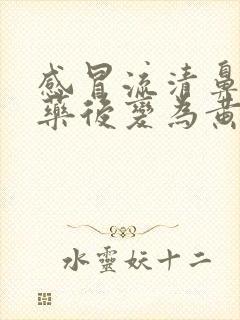 感冒流清鼻
藥後變為黃
水靈妖十二